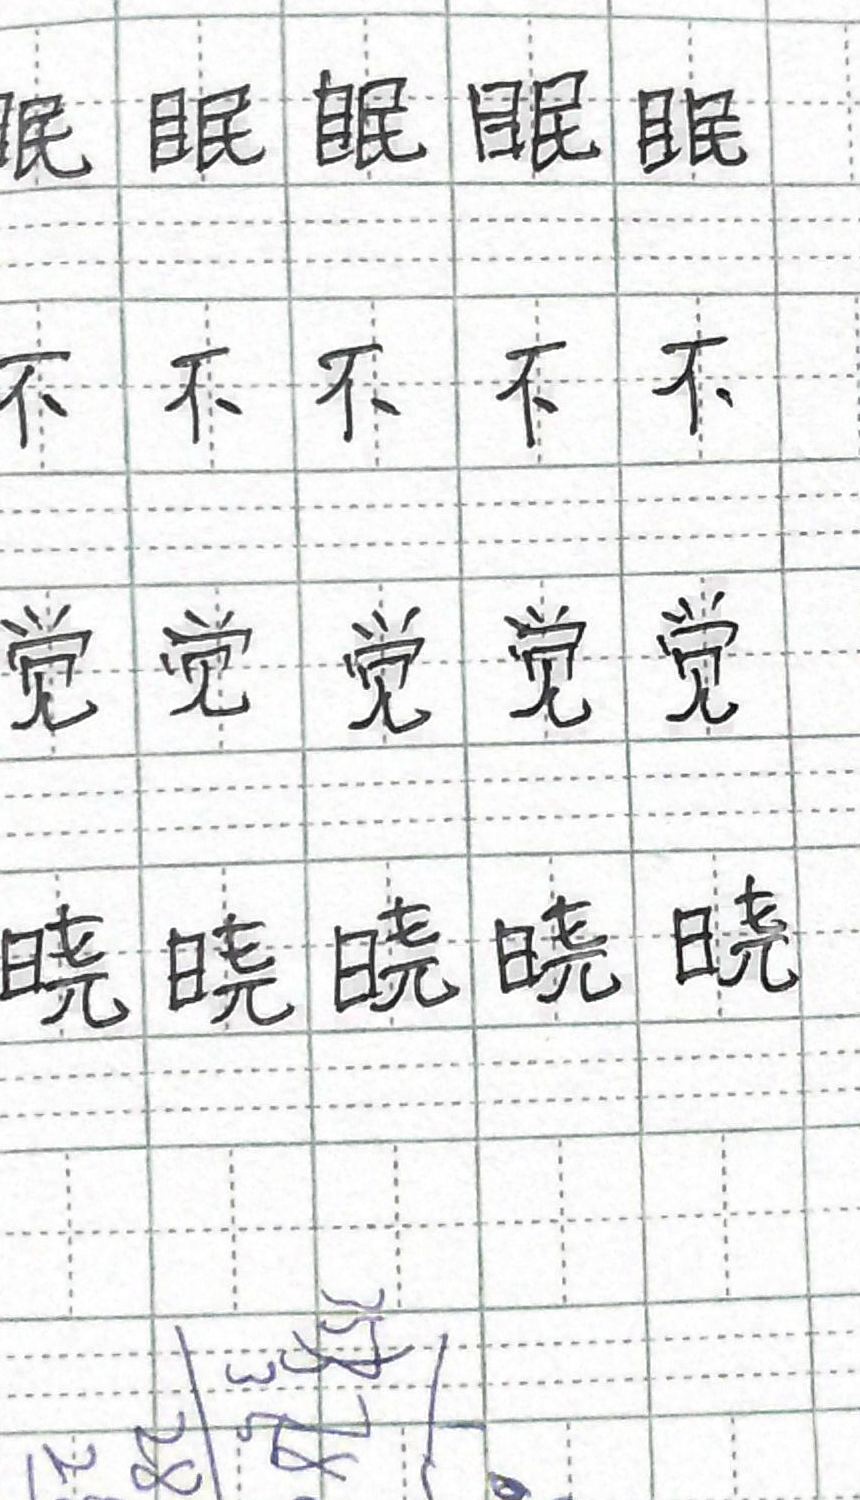 眠眠眠眠眠
不不不不不
觉觉觉觉觉
晓晓晓晓晓